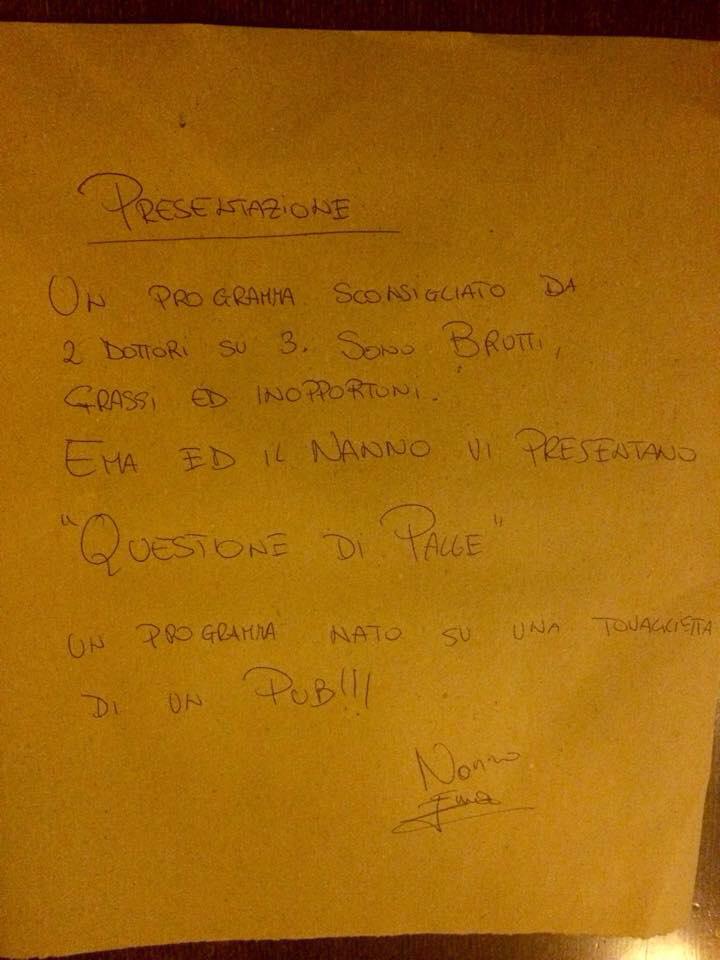 PRESENTAZIONE
UN PROGRAMMA SCONSIGLIATO DA
2 DOTTORI SU 3. SONO BRUTTI,
GRASSI ED INOPPORTUNI.
EMA ED IL NANNO VI PRESENTANO
"QUESTIONE DI PALLE"
UN PROGRAMMA NATO SU UNA TOVAGLIETTA
DI UN PUB!!!
Nanno
Ema